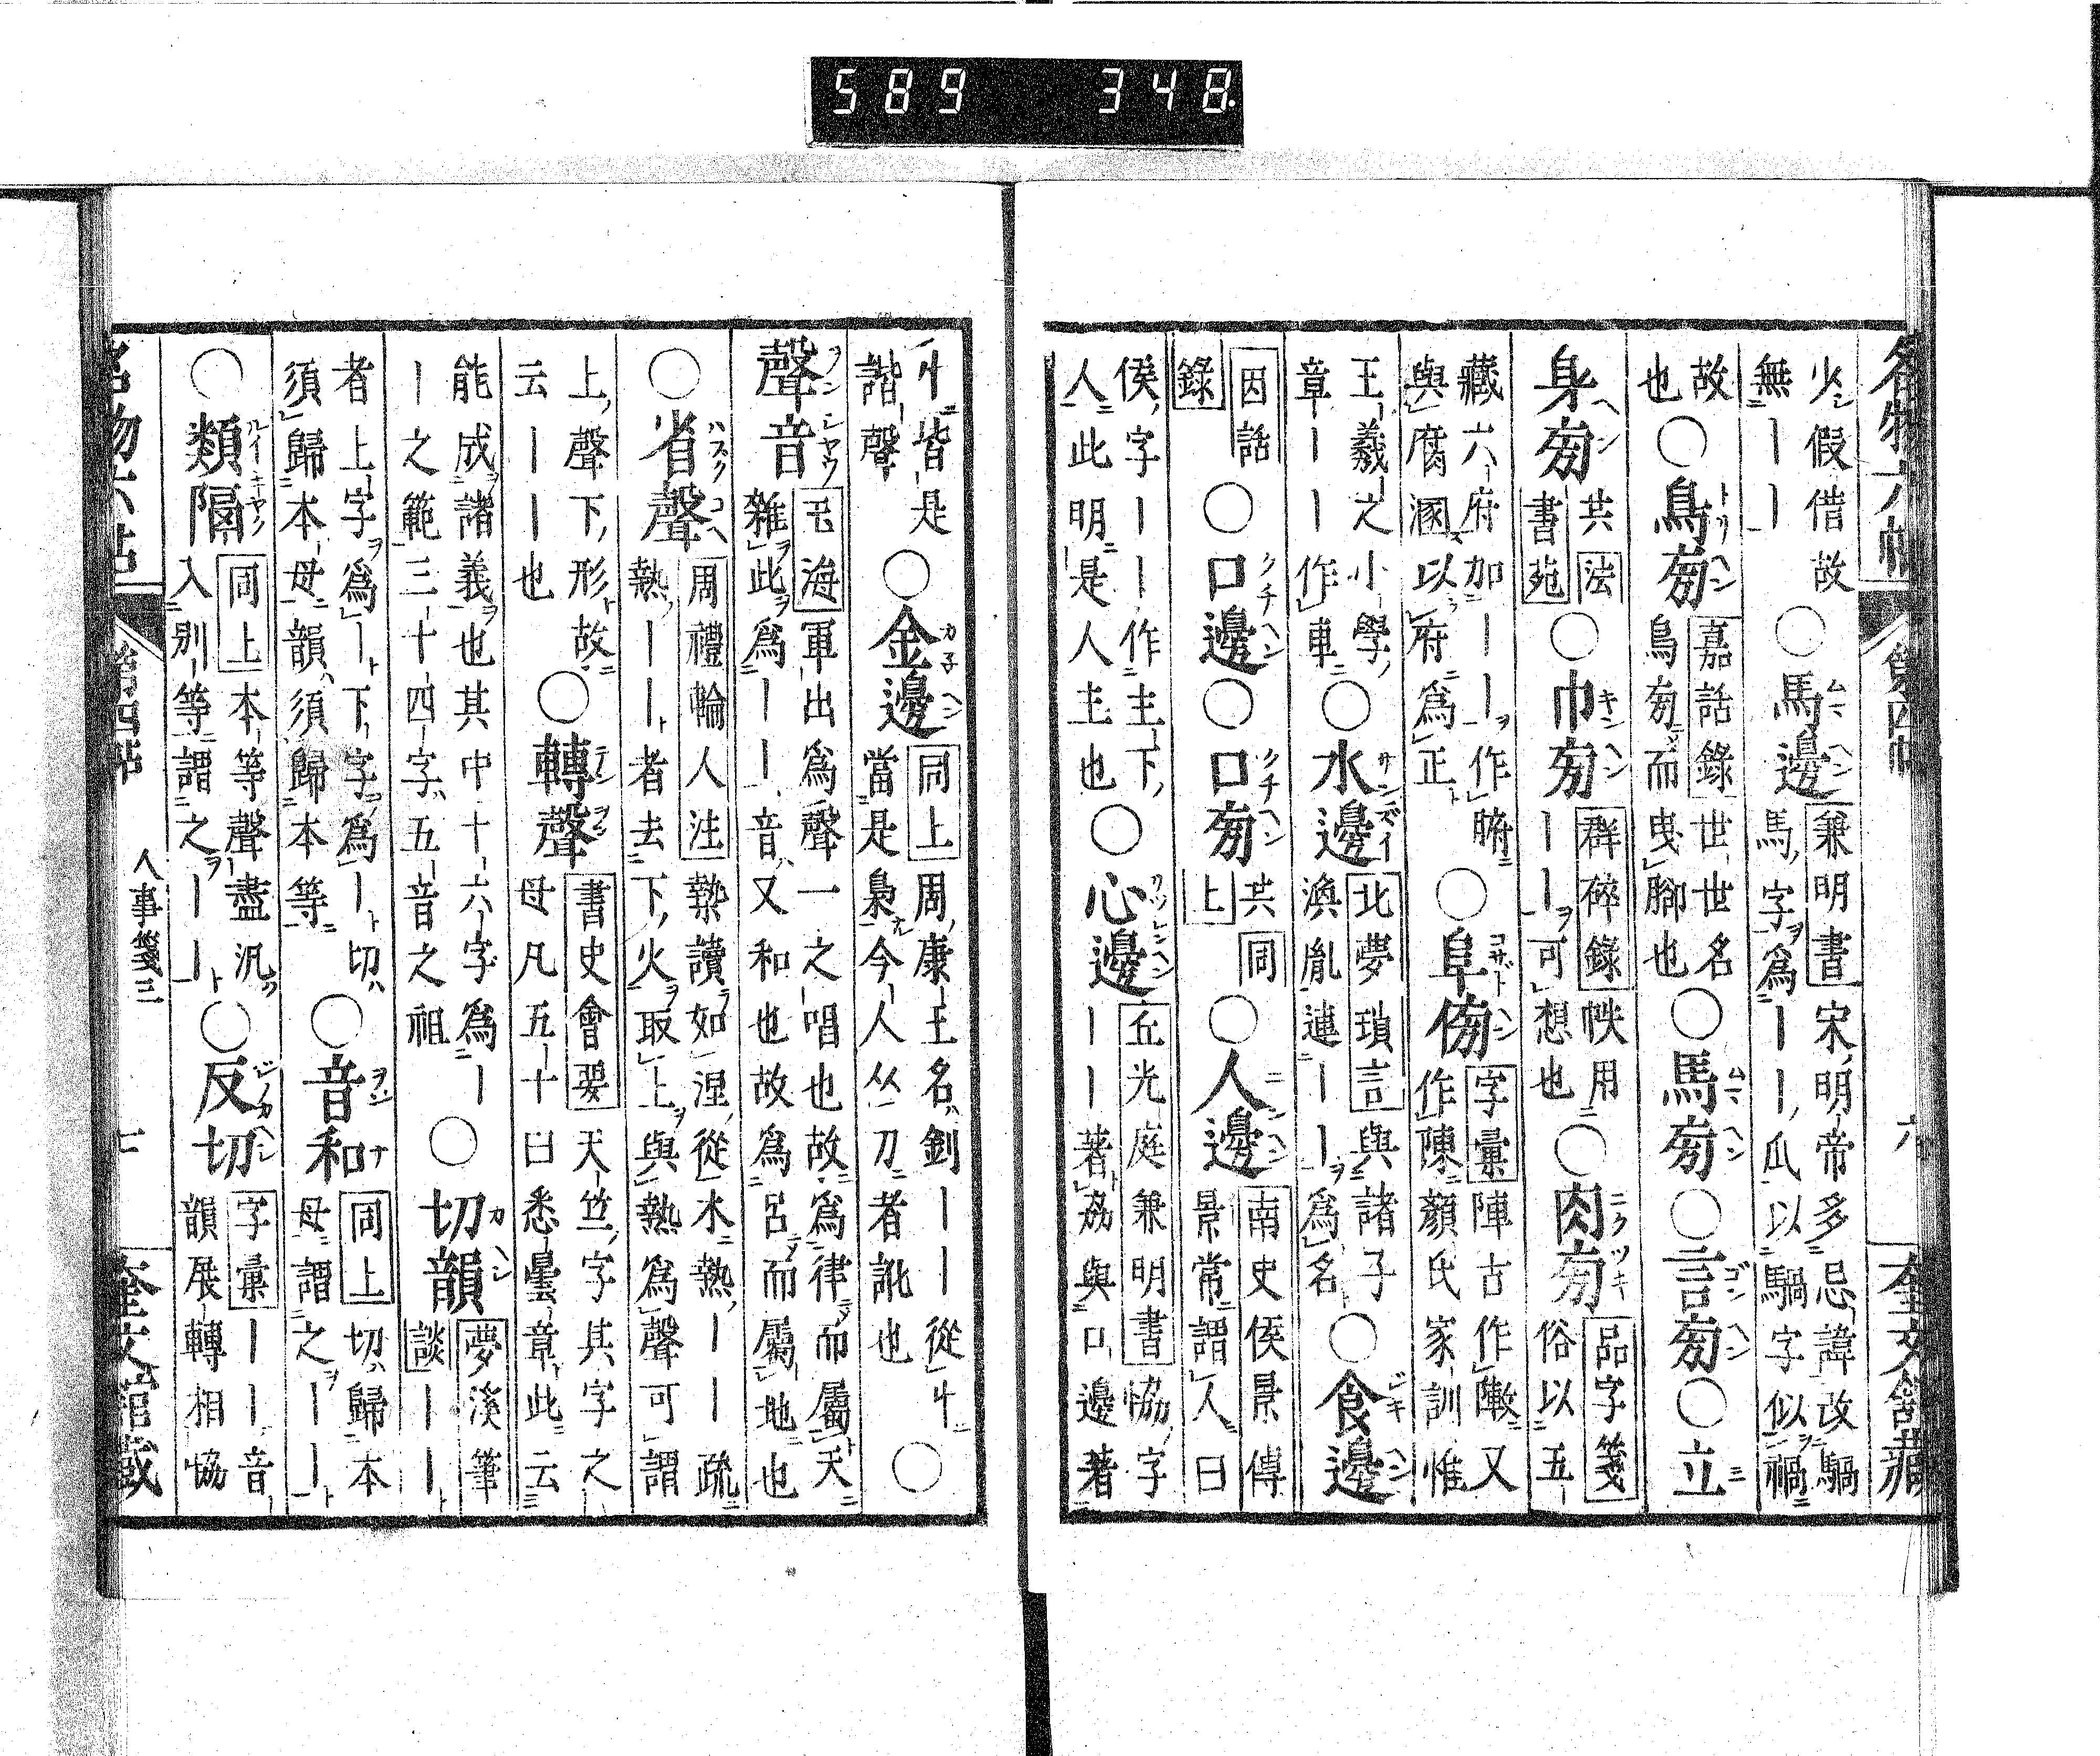 589 348
名物六帖 第四帖 六 奎文館藏
火假借故
無——
○馬邊
兼明書
宋明帝多忌諱改騧
馬字爲——瓜以騧字似禍
故
也
○鳥旁
嘉話錄
世世名
鳥旁而曳脚也
○馬旁○言旁○立
身旁
共法
書苑
○巾旁
群碎錄
帙用
——可想也
○肉旁
品字箋
俗以五
藏六府加——作腑
與腐溷以府爲正
○阜傍
字彙
陣古作敶又
作陳顏氏家訓惟
王羲之小學
章——作車
○水邊
北夢瑣言
與諸子
渙胤連——爲名
○食邊
因話
錄
○口邊○口旁
共同
上
○人邊
南史侯景傳
景常謂人曰
侯字——作主下
人此明是人主也
○心邊
丘光庭兼明書
恊字
——著劦與口邊著
十皆是
諧聲
○金邊
同上
周康王名釗——從刂
當是梟今人从刀者訛也
○
聲音
玉海
軍出爲聲一之唱也故爲律而屬天
雜此爲——音又和也故爲呂而屬地也
○省聲
周禮輪人注
㷍讀如涅從木熱——疏
熱——者去下火取上與熱爲聲可謂
上聲下形故
云——也
○轉聲
書史會要
天竺字其字之
母凡五十曰悉曇章此云
能成諸義也其中十六字爲—
—之範三十四字五音之祖
○切韻
夢溪筆
談
——
者上字爲—下字爲—切
須歸本母韻須歸本等
○音和
同上
切歸本
母謂之——
○類隔
同上
本等聲盡汎
入別等謂之——
○反切
字彙
——音
韻展轉相恊
名物六帖 第四帖 人事箋三 七 奎文館藏